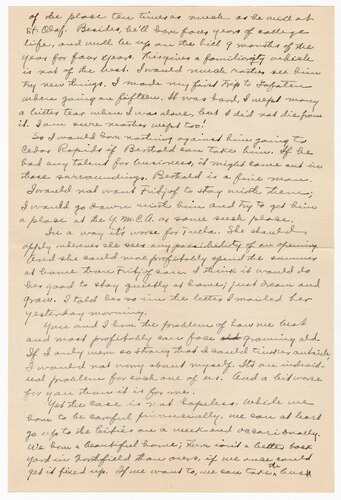 of the place ten times as much as he will at
St. Olaf. Besides, he'll have four years of college
life, and will be up on the hill 9 months of the
year for four years. This gives a familiarity which
is not of the best. I would much rather see him
try new things. I made my first trip to
when going on fifteen. It was hard, I wept many
a bitter tear when I was alone, but I did not die from
it. I am sure mother wept too!
So I would have nothing against him going to
Cedar Rapids if Berthold can take him. If he
had any talent for business, it might come out in
those surroundings. Berthold is a fine man.
I would not want Fritjof to stay with them;
I would go down with him and try to get him
a place at the Y.M.C.A. or some such place.
In a way it's worse for She should
apply wherever she sees any possibility of an opening.
And she could more profitably spend the summer
at home than Fritjof can. I think it would do
her good to stay quietly at home; just and
grow. I told her so in the letter I mailed her
yesterday morning.
You and I have the problem of how we best
and most profitably can face growing old.
If I only were so strong that I could outside,
I would not worry about myself. It's an individ-
ual problem for each one of us. And a bit worse
for you than it is for me.
Yet the case is not hopeless. While we
have to be careful financially, we can at least
go up to the Cities on a weekend occasionally.
We have a beautiful home; there isn't a better back
yard in Northfield than ours, if we once could
get it fixed up. If we want to, we can take the bus